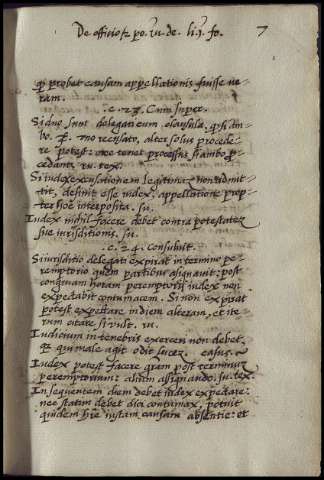 De officio et po. iu. de. li. j. fo. 7
q probet causam appellationis fuisse ve-
ram.
.c. 23. Cum super.
Si duo sunt delegati cum clausula: q si am-
bo. &. uno recusato, alter solus procede-
re potest: nec tenet processus si ambo p-
cedant. ru. tex.
Si iudex excusationem legitimam non admit-
tit, desinit esse iudex: appellatione prop-
ter hoc interposita. su.
Iudex nihil facere debet contra potestatem
sue iurisditionis. su.
.c. 24. Consuluit.
Si iurisditio delegati expirat in termino pe-
remptorio quem partibus assignavit: post
congruam horam peremptorii iudex non
expectabit contumacem. Si non expirat
potest expectare in diem alteram, et ite-
rum citare si vult. ru.
Iudicium in tenebris exerceri non debet,
q qui male agit odit lucem. casus.
Iudex potest facere gram post terminum
peremptorium: alium assignando. su. tex.
In sequentem diem debet iudex expectare:
nec statim debet dici contumax, potuit
quidem hre iustam causam absentie: et